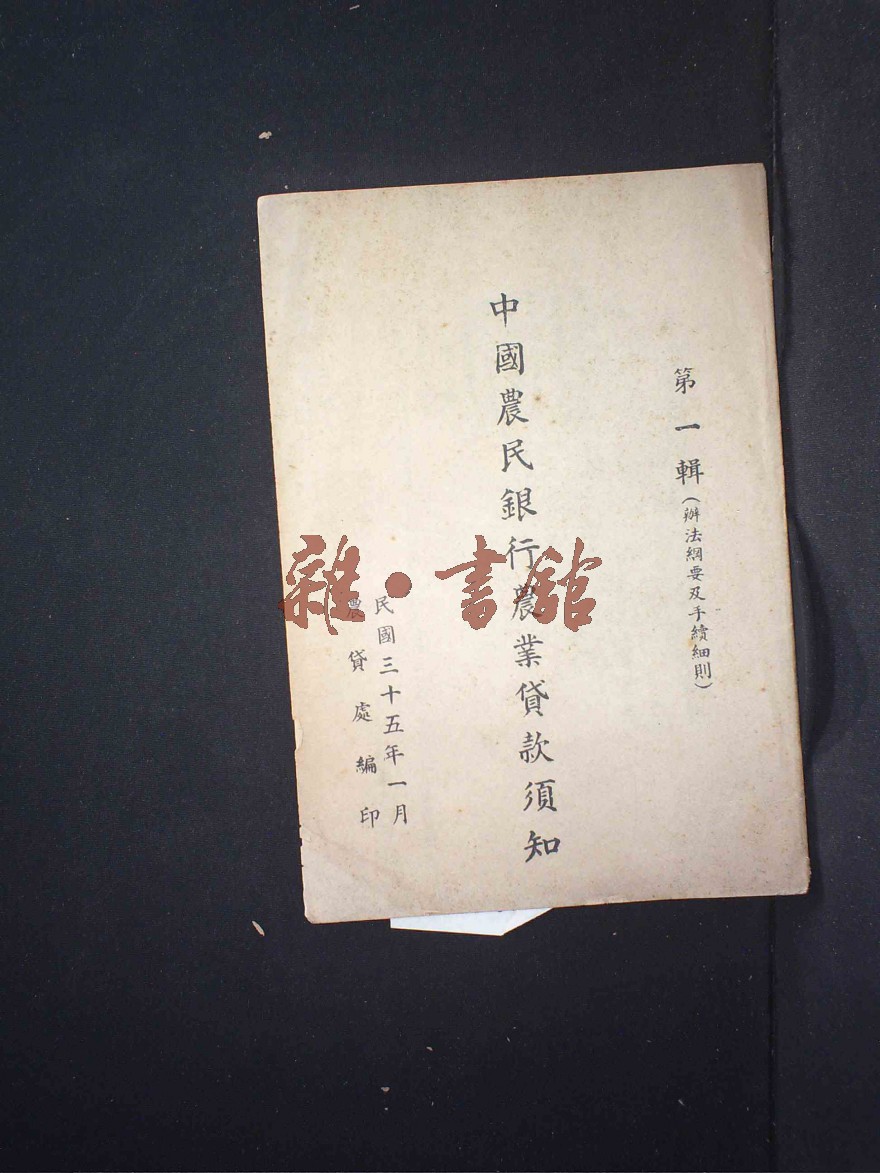 第一輯（辦法綱要及手續細則）
中國農民銀行農業貸款須知
民國三十五年一月
農貸處編印
雜·書舘